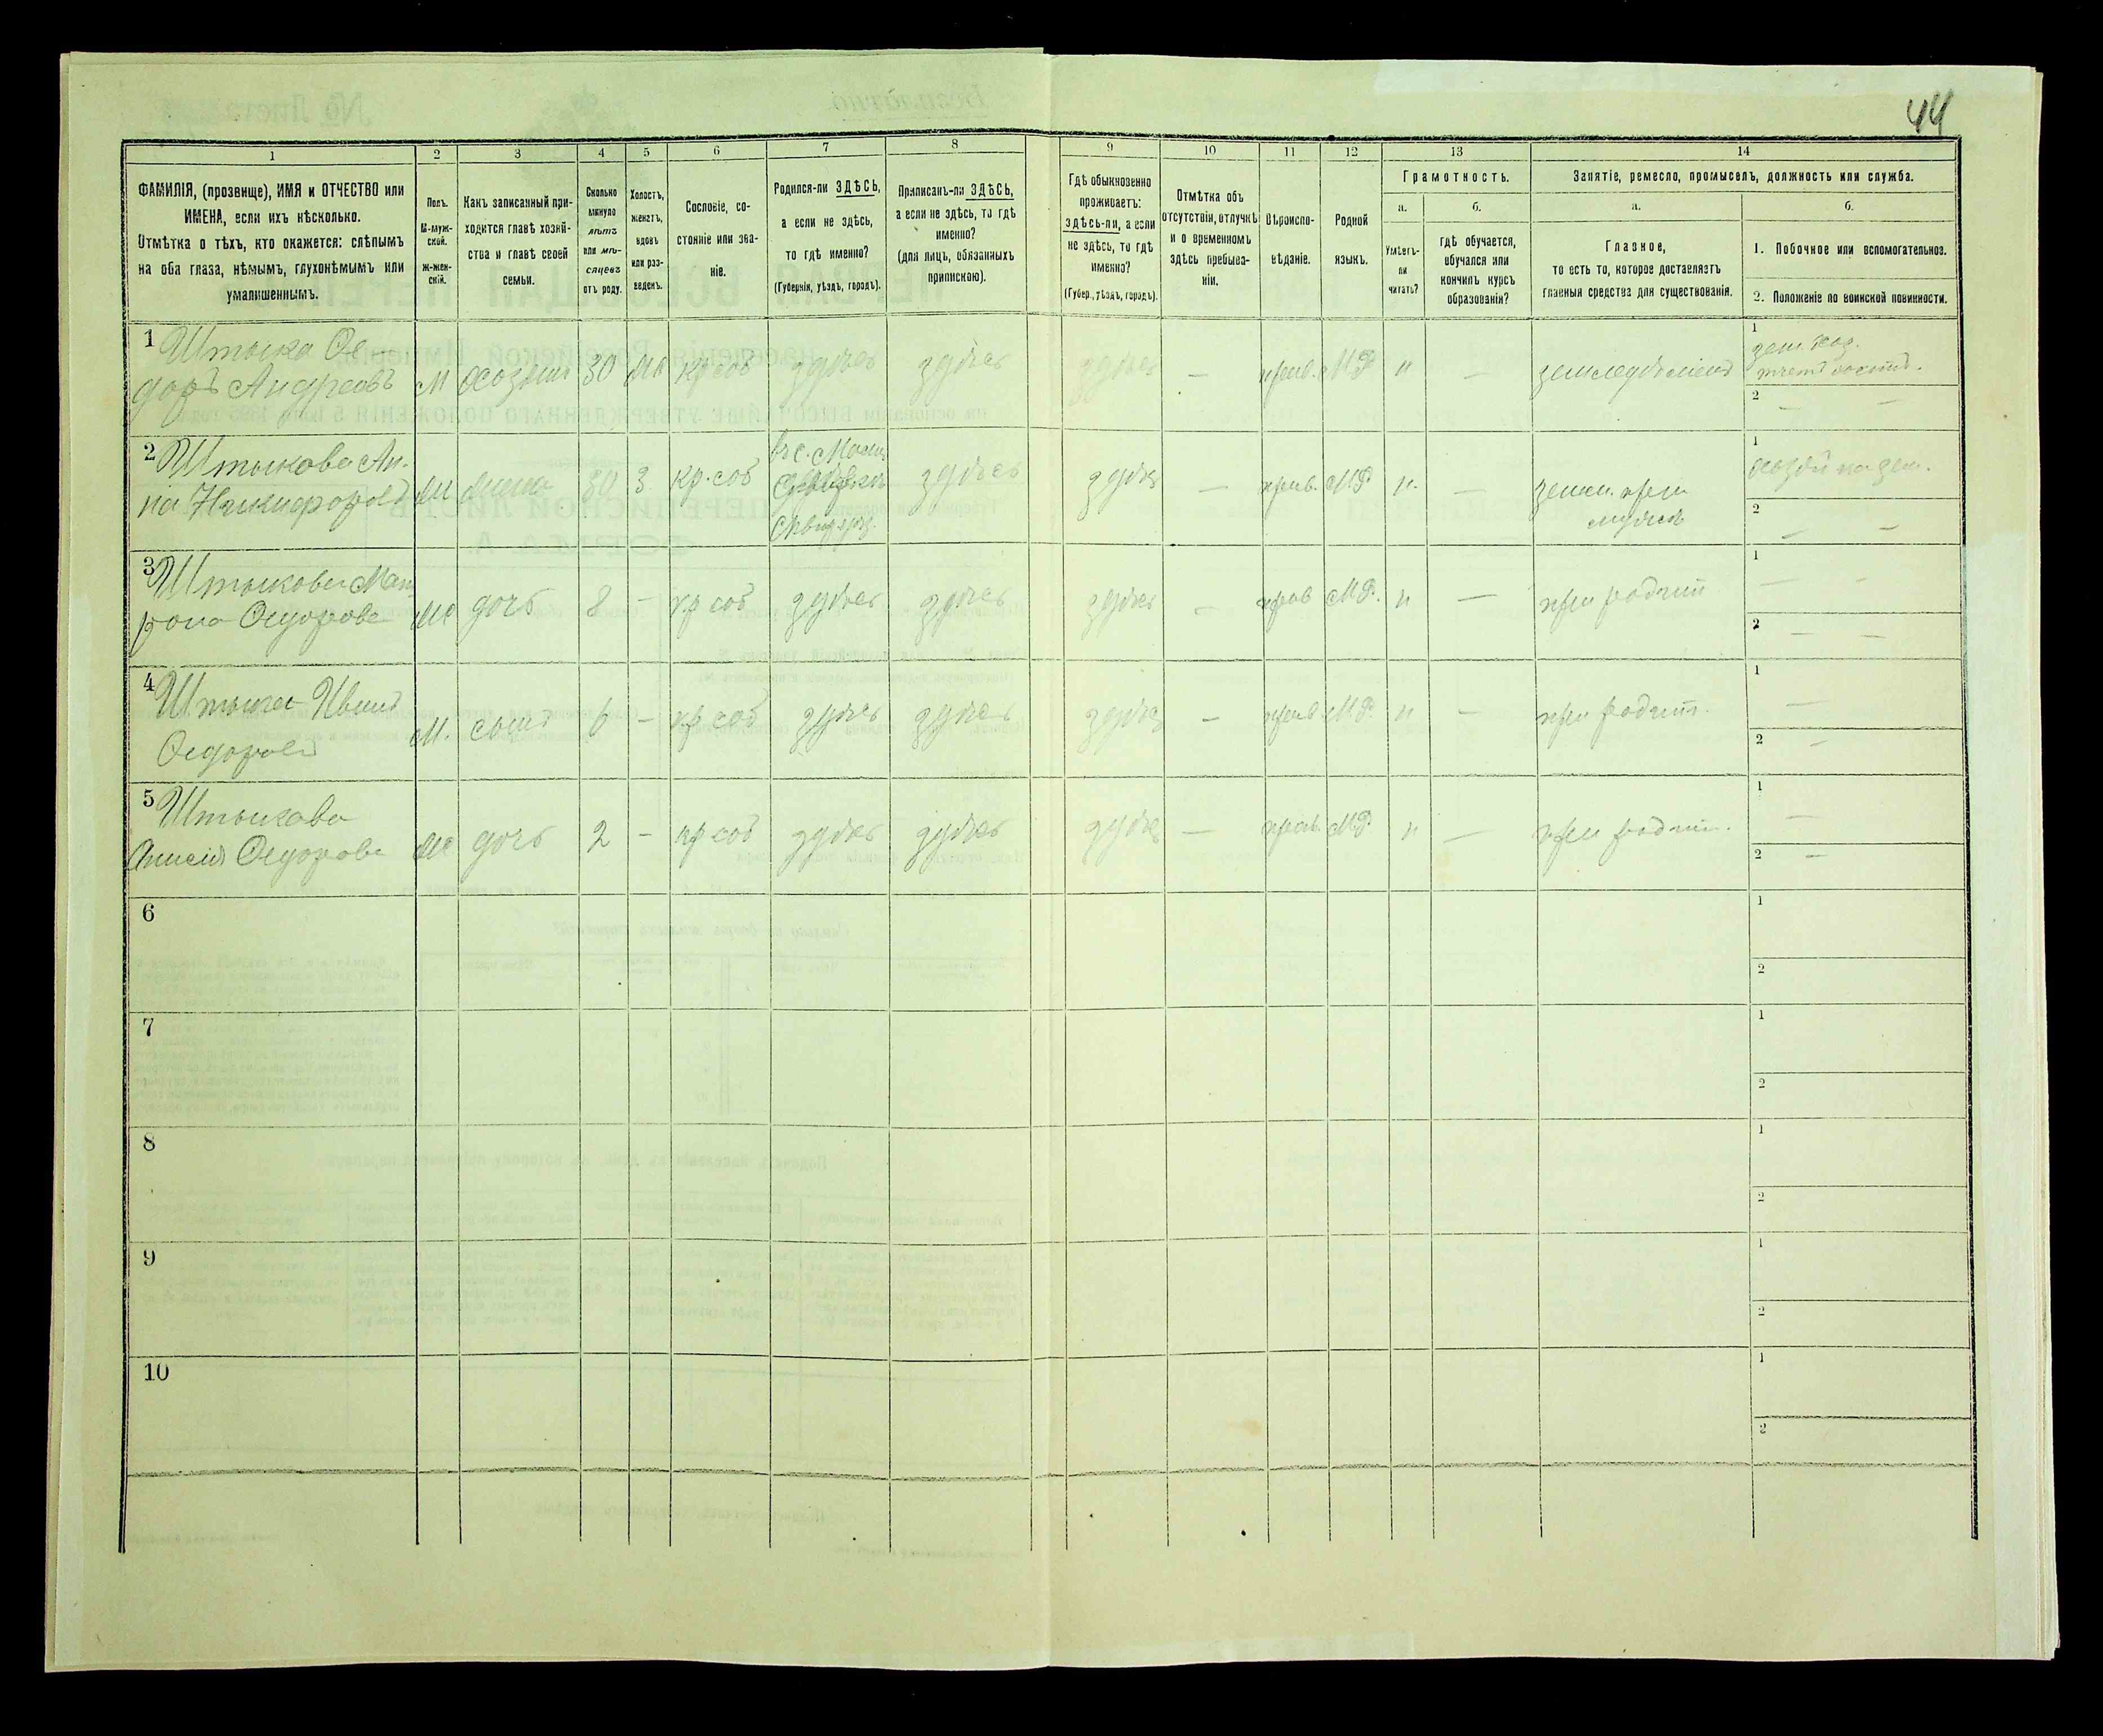 44
1
2
3
4
5
6
7
8
9
10
11
12
13
14
ФАМИЛІЯ, (прозвище), ИМЯ и ОТЧЕСТВО или
ИМЕНА, если ихъ нѣсколько.
Отмѣтка о тѣхъ, кто окажется: слѣпымъ
на оба глаза, нѣмымъ, глухонѣмымъ или
умалишеннымъ.
Полъ.
М-муж-
ской.
Ж-жен-
скій.
Какъ записанный при-
ходится главѣ хозяй-
ства и главѣ своей
семьи.
Сколько
минуло
лѣтъ
или мѣ-
сяцевъ
отъ роду.
Холостъ,
женатъ,
вдовъ
или раз-
веденъ.
Сословіе, со-
стояніе или зва-
ніе.
Родился-ли ЗДѢСЬ,
а если не здѣсь,
то гдѣ именно?
(Губернія, уѣздъ, городъ).
Приписанъ-ли ЗДѢСЬ,
а если не здѣсь, то гдѣ
именно?
(для лицъ, обязанныхъ
припискою).
Гдѣ обыкновенно
проживаетъ:
здѣсь-ли, а если
не здѣсь, то гдѣ
именно?
(Губер., уѣздъ, городъ).
Отмѣтка объ
отсутствіи, отлучкѣ
и о временномъ
здѣсь пребыва-
ніи.
Вѣроиспо-
вѣданіе.
Родной
языкъ.
Грамотность.
а.
Умѣетъ-
ли
читать?
б.
гдѣ обучается,
обучался или
кончилъ курсъ
образованія?
Занятіе, ремесло, промыселъ, должность или служба.
а.
Главное,
то есть то, которое доставляетъ
главныя средства для существованія.
б.
1. Побочное или вспомогательное.
2. Положеніе по воинской повинности.
1 Штыка Ѳе
доръ Андреевъ
М
хозяинъ
30
жн
кр соб
здѣсь
здѣсь
здѣсь
—
прав.
М.Р
н
—
земледѣліемъ
1
2 — —
2 Штыкова Ан-
на Никифорова
ж
жена
30
З
кр. соб
здѣсь
здѣсь
—
прав.
М.Р
н.
—
земл. при
мужѣ
1
2 — —
3 Штыкова Мат
рона Ѳедорова
ж
дочь
8
—
кр соб
здѣсь
здѣсь
здѣсь
—
прав
М.Р.
н
—
при родит
1 — —
2 — —
4 Штыка Иванъ
Ѳедоровъ
М.
сынъ
6
—
кр соб
здѣсь
здѣсь
здѣсь
—
прав
М.Р.
н
—
при родит.
1 —
2 —
5 Штыкова
Анисія Ѳедорова
ж
дочь
2
—
кр соб
здѣсь
здѣсь
здѣсь
—
прав.
М.Р.
н
—
при родит.
1 —
2 —
6
1
2
7
1
2
8
1
2
9
1
2
10
1
2